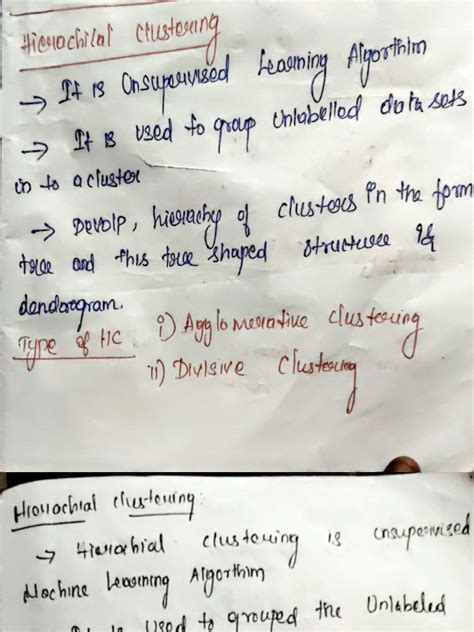 Hierachilal Clustering
→ It is Unsupervised Learning Algorthim
→ It is used to group Unlabelled data sets
in to a cluster
→ Devolp, hierachy of clusters in the form
tree and this tree shaped structure is
dendarogram.
Type of HC i) Agglomerative clustering
ii) Divisive Clustering
Hierachial clustering:
→ Hierarhial clustering is unsupervised
Machine Learning Algorthim
is used to grouped the Unlabeled